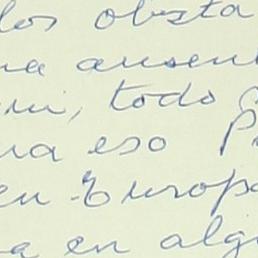 los obsta
na ausen
mi, todo p
na eso p
en Europa
a en alg